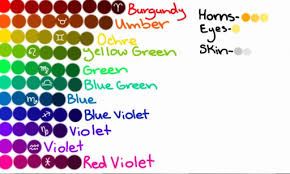 Burgundy
Umber
Ochre
Yellow Green
Green
Blue Green
Blue
Blue Violet
Violet
Violet
Red Violet
Horns-
Eyes-
Skin-